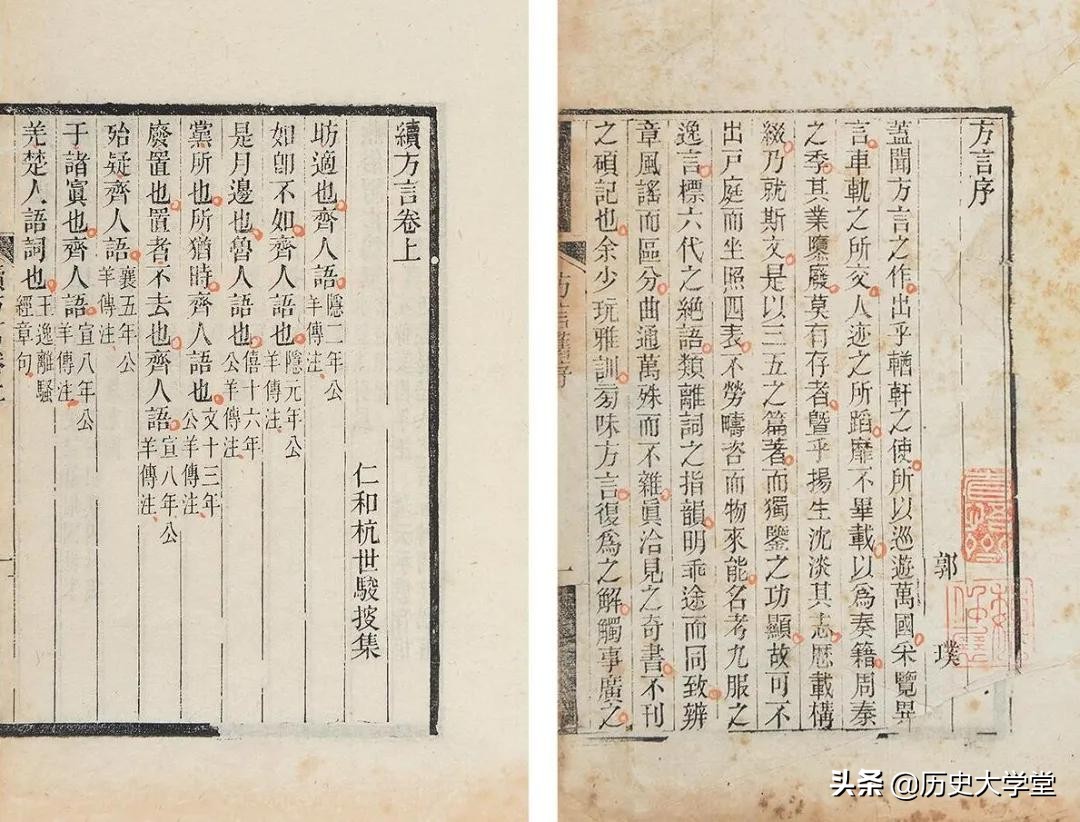 方言序
郭璞
蓋聞方言之作出乎輶軒之使所以巡遊萬國采覽異
言車軌之所交人迹之所蹈靡不畢載以爲奏籍周秦
之季其業隳廢莫有存者曁乎揚生沈淡其志歷載構
綴乃就斯文是以三五之篇著而獨鑒之功顯故可不
出戶庭而坐照四表不勞疇咨而物來能名考九服之
逸言標六代之絕語類離詞之指韻明乖途而同致辨
章風謠而區分曲通萬殊而不雜眞洽見之奇書不刊
之碩記也余少玩雅訓旁味方言復爲之解觸事廣之
續方言卷上
仁和杭世駿披集
昉適也齊人語隱二年公羊傳注
如卽不如齊人語也隱元年公羊傳注
是月邊也魯人語也僖十六年公羊傳注
黨所也所猶時齊人語也文十三年公羊傳注
廢置也置者不去也齊人語宣八年公羊傳注
殆疑齊人語襄五年公羊傳注
于諸寘也齊人語宣八年公羊傳注
羌楚人語詞也王逸離騷經章句
头条 @历史大学堂